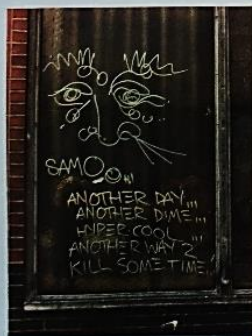 SAMO
ANOTHER DAY,,,
ANOTHER DIME,,,
HYPER COOL
ANOTHER WAY 2,,,
KILL SOME TIME,